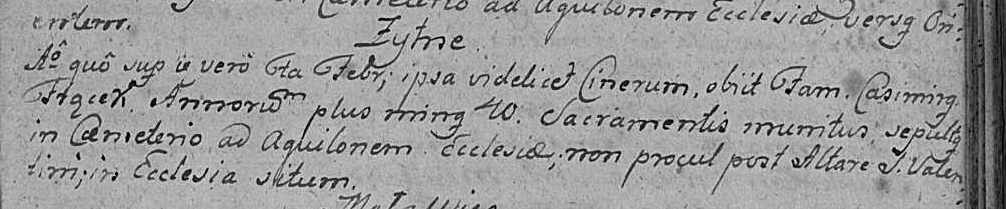 in Cæmeterio ad Aquilonem Ecclesiæ, versq Ori:
entem.
Zytne.
Aō quô sup ie verô 7ta Febr; ipsa videlicet Cinerum, obiit Fam. Casimirq
Frącek. Annorum plus minq 40. Sacramentis munitus, sepultq
in Cæmeterio ad Aquilonem Ecclesiæ; non procul post Altare S. Valen
tini; in Ecclesia situm.